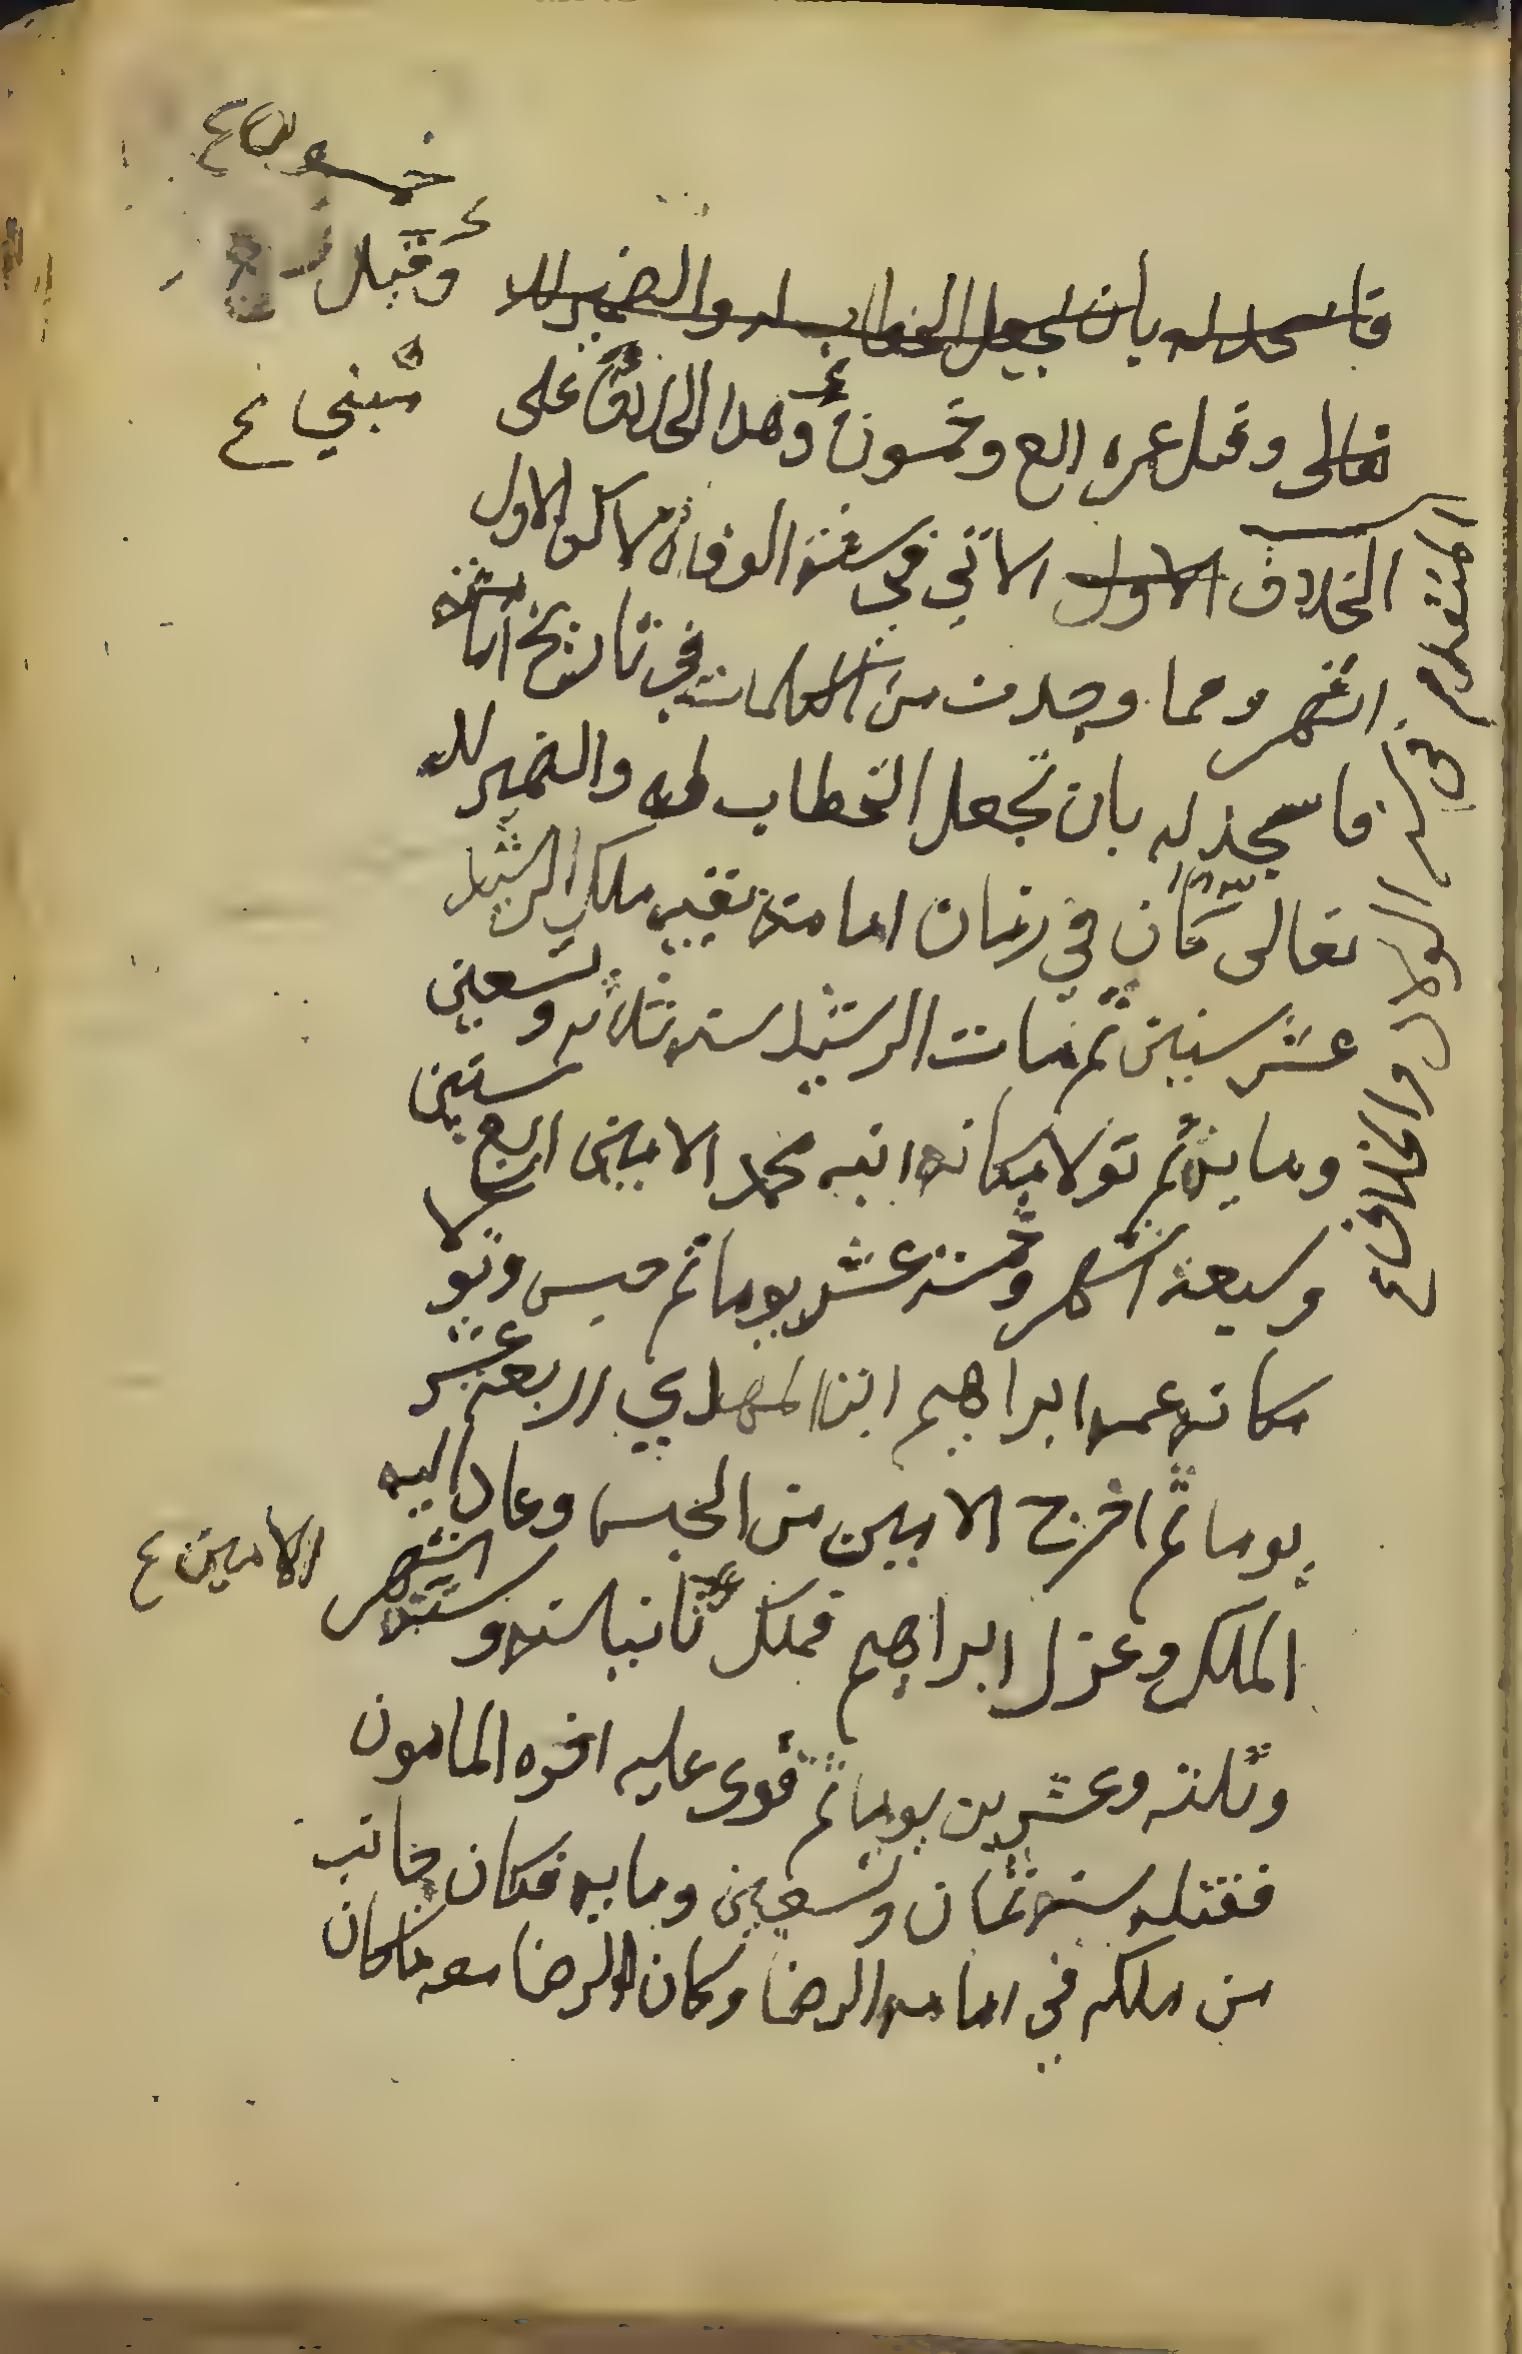 خمسون ع
وقيل
مبني ع
فاسجد له بان تجعل الخطاب له والضمير لله
تعالى وقيل عمره اربع وخمسون وهذا الخلاف على
الخلاف الاول الاتي في سنة الوفاة لا كن الاول
اشهر ومما وجدت من الكلمات في تاريخ امامته
فاسجد له بان تجعل الخطاب له والضمير لله
تعالى كان في زمان امامته بقية ملك الرشيد
عشر سنين ثم مات الرشيد سنة ثلاثة وتسعين
وماية ثم تولا مكانه ابنه محمد الامين اربع سنين
وسبعة اشهر وخمسة عشر يوما ثم حبس وتولا
مكانه عمه ابراهيم ابن المهدي اربعة عشر
يوما ثم اخرج الامين من الحبس وعاد اليه
الملك وعزل ابراهيم فملك ثانيا سنة وستة اشهر
الامين ع
وثلثة وعشرين يوما ثم قوى عليه اخوه المامون
فقتله سنة ثمان وتسعين وماية فكان جانب
من ملكه في امامة الرضا وكان الرضا معه مكان
المتقدم في سنة الولاد والخلاف ع